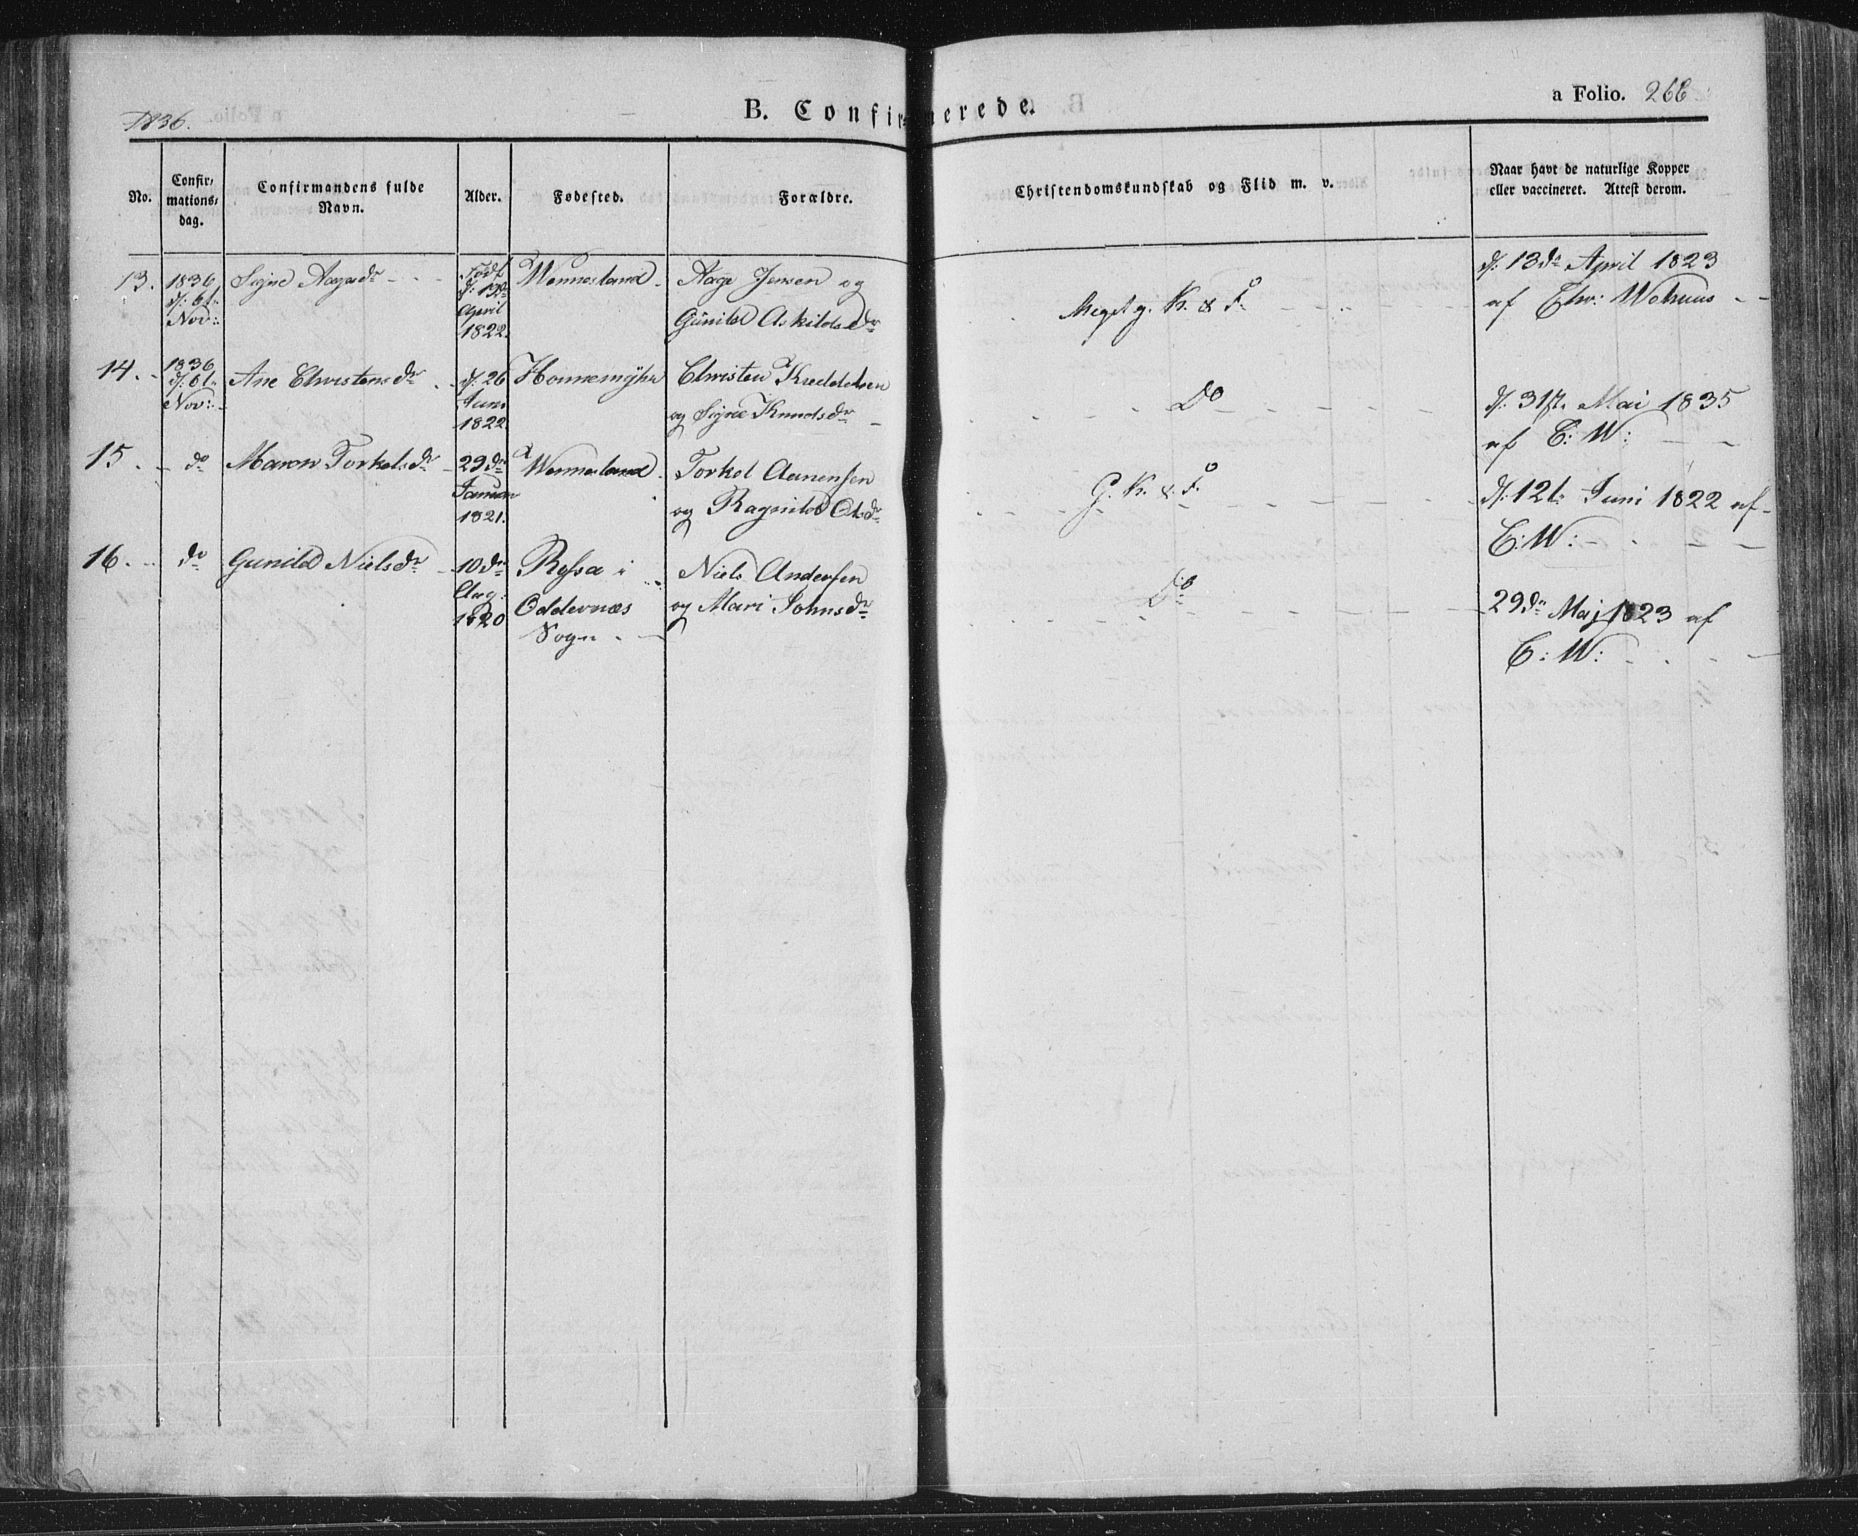 1836.
B. Confirmerede.
a Folio. 266
No.
Confir-
mations-
dag.
Confirmandens fulde
Navn.
Alder.
Fødested.
Forældre.
Christendomskundskab og Flid m. v.
Naar havt de naturlige Kopper
eller vaccineret. Attest derom.
13.
1836
d: 6t:
Nov:
Signe Aagesdr
Født
d: 13de
April
1822.
Wennesland
Aage Jensen og
Gunild Askildsdr
Meget g. K. & F.
d: 13de April 1823
af Chr: Wehuus
14.
1836
d: 6t:
Nov:
Ane Christensdr
d: 26
Juni
1822
Homemyhr
Christen
og Signe Knudsdr
Do
d: 31te Mai 1835
af C: W:
15.
do
Maren Torkelsdr
29de
Januar
1821.
Wennesland
Torkel Aanensen
og Ragnild Olsdr
G. K. & F.
d: 12t: Juni 1822 af
C: W:
16.
do
Gunild Nielsdr
10de
Aug:
1820
Ryssa i
Oddernæs
Sogn
Niels Andersen
og Mari Johnsdr
Do
29de Maj 1823 af
C: W: